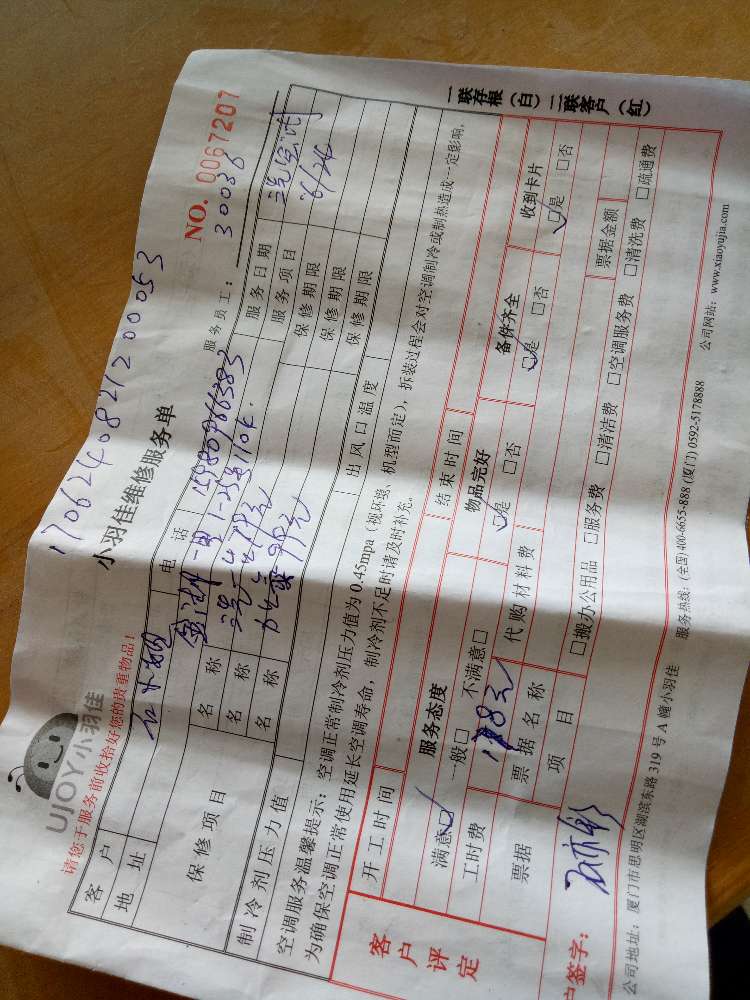 170624082120005​3
UJOY小羽佳
小羽佳维修服务单
NO. 0067207
请您于服务前收拾好您的贵重物品！
服务员工： 30036
客户
电话
服务日期
地址
服务项目
保修项目
名称
保修期限
名称
保修期限
名称
加氟99元
保修期限
制冷剂压力值
出风口温度
空调服务温馨提示：空调正常制冷剂压力值为0.45mpa（视环境、机型而定），拆装过程会对空调制冷或制热造成一定影响，
为确保空调正常使用延长空调寿命，制冷剂不足时请及时补充。
一联存根（白）二联客户（红）
客户评定
开工时间
结束时间
服务态度
物品完好
备件齐全
收到卡片
满意□ 一般□ 不满意□
□是 □否
□是 □否
□是 □否
工时费
代购材料费
票据金额
票据
票据名称
项目
□搬办公用品 □服务费 □清洁费 □空调服务费 □清洗费 □疏通费
户签字：
公司地址：厦门市思明区湖滨东路319号A幢小羽佳
服务热线：(全国)400-6655-888 (厦门) 0592-5178888
公司网站：www.xiaoyujia.com